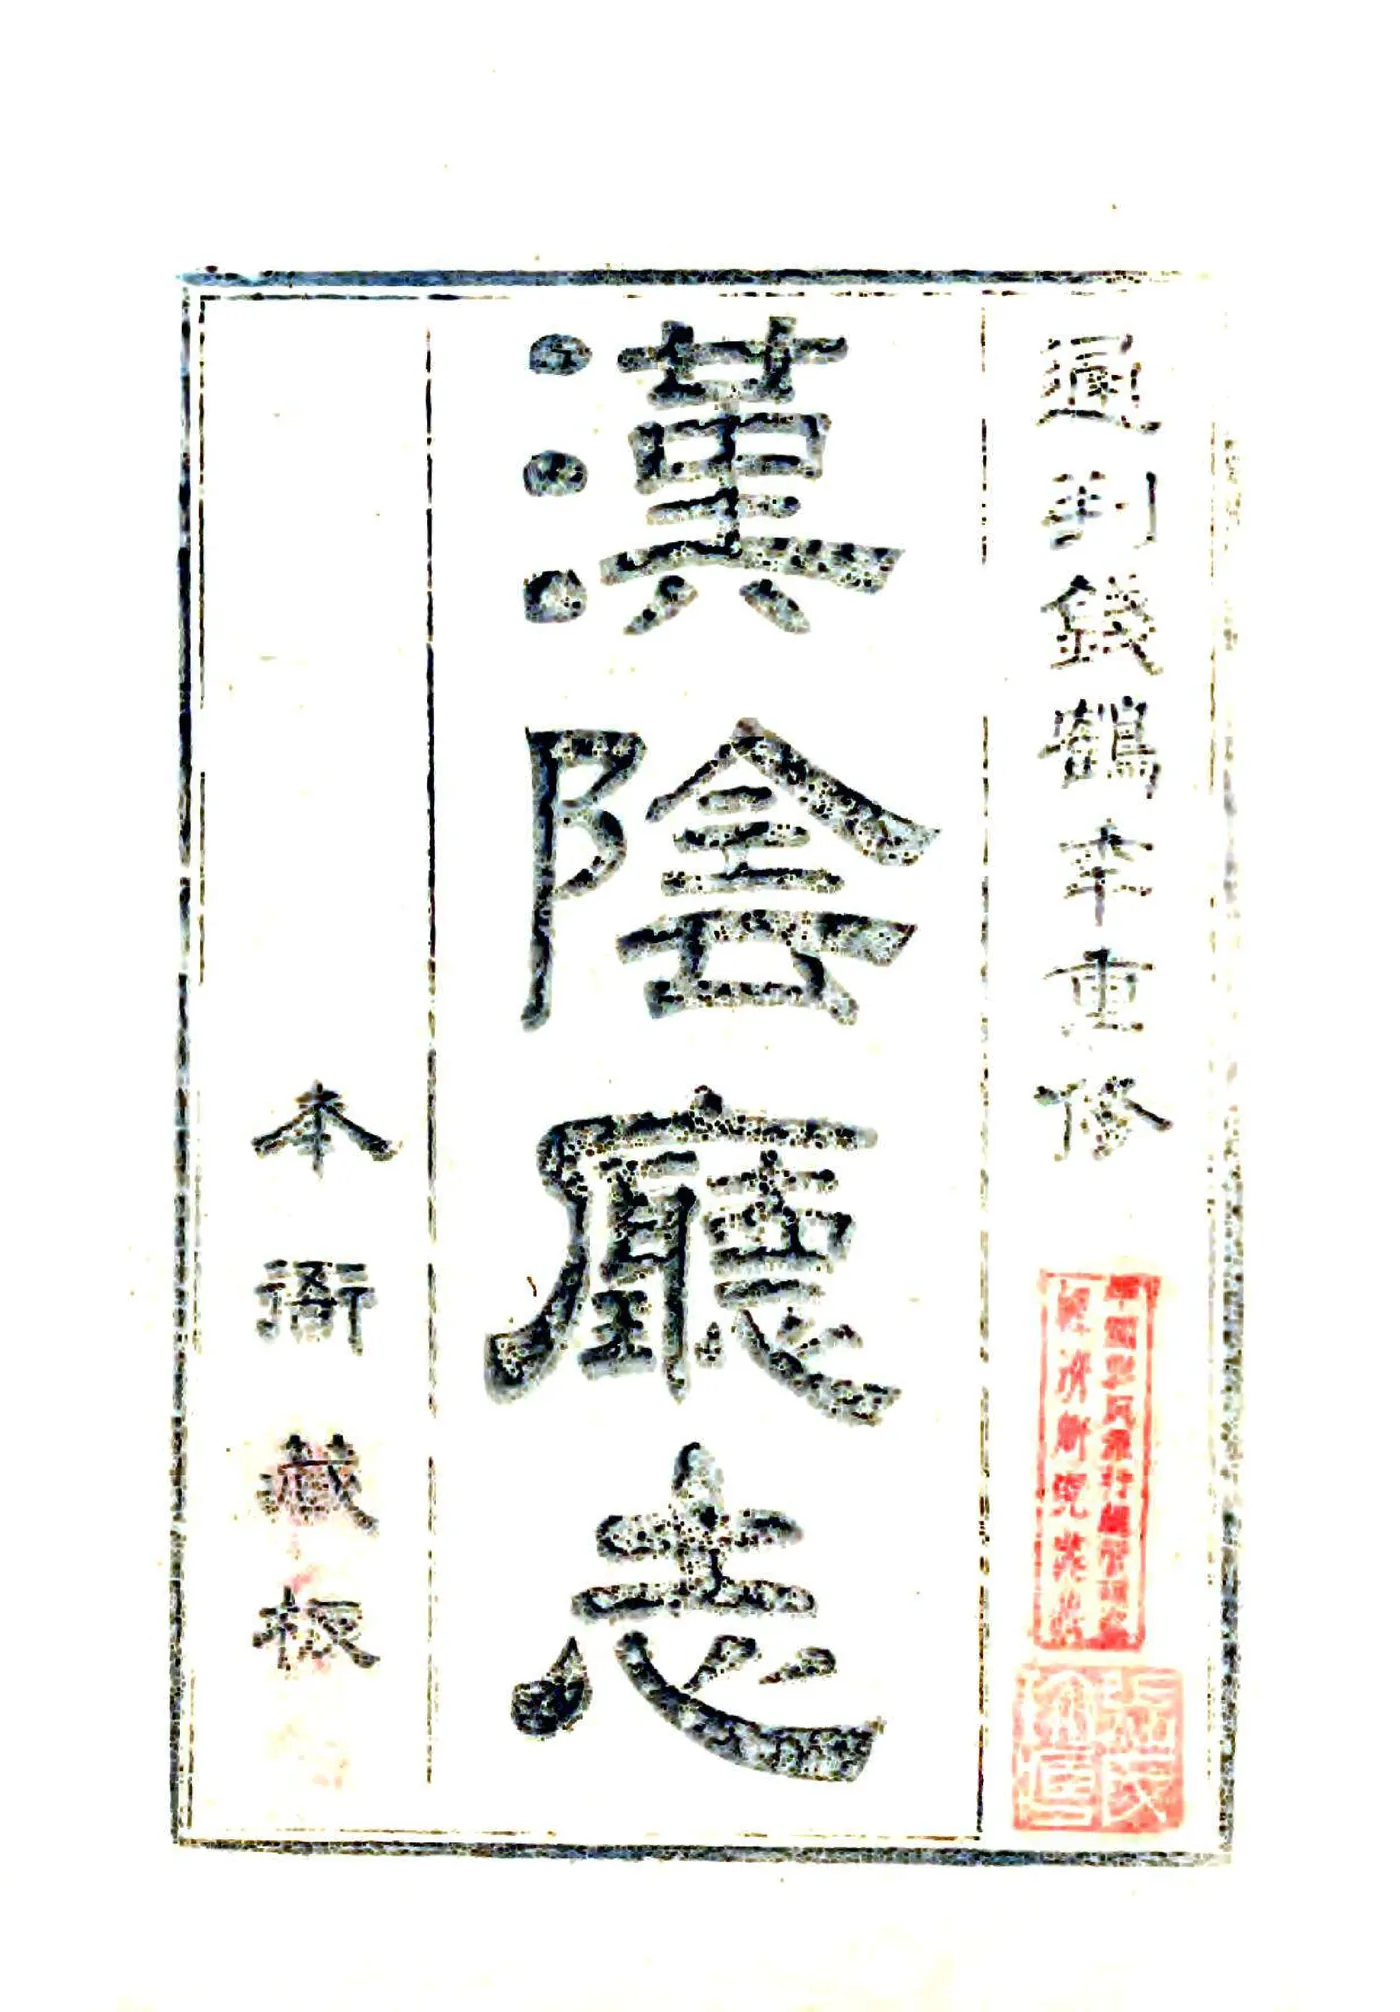 通判錢鶴年重修
漢陰廳志
本衙藏板
中國農民銀行總管理處
經濟研究